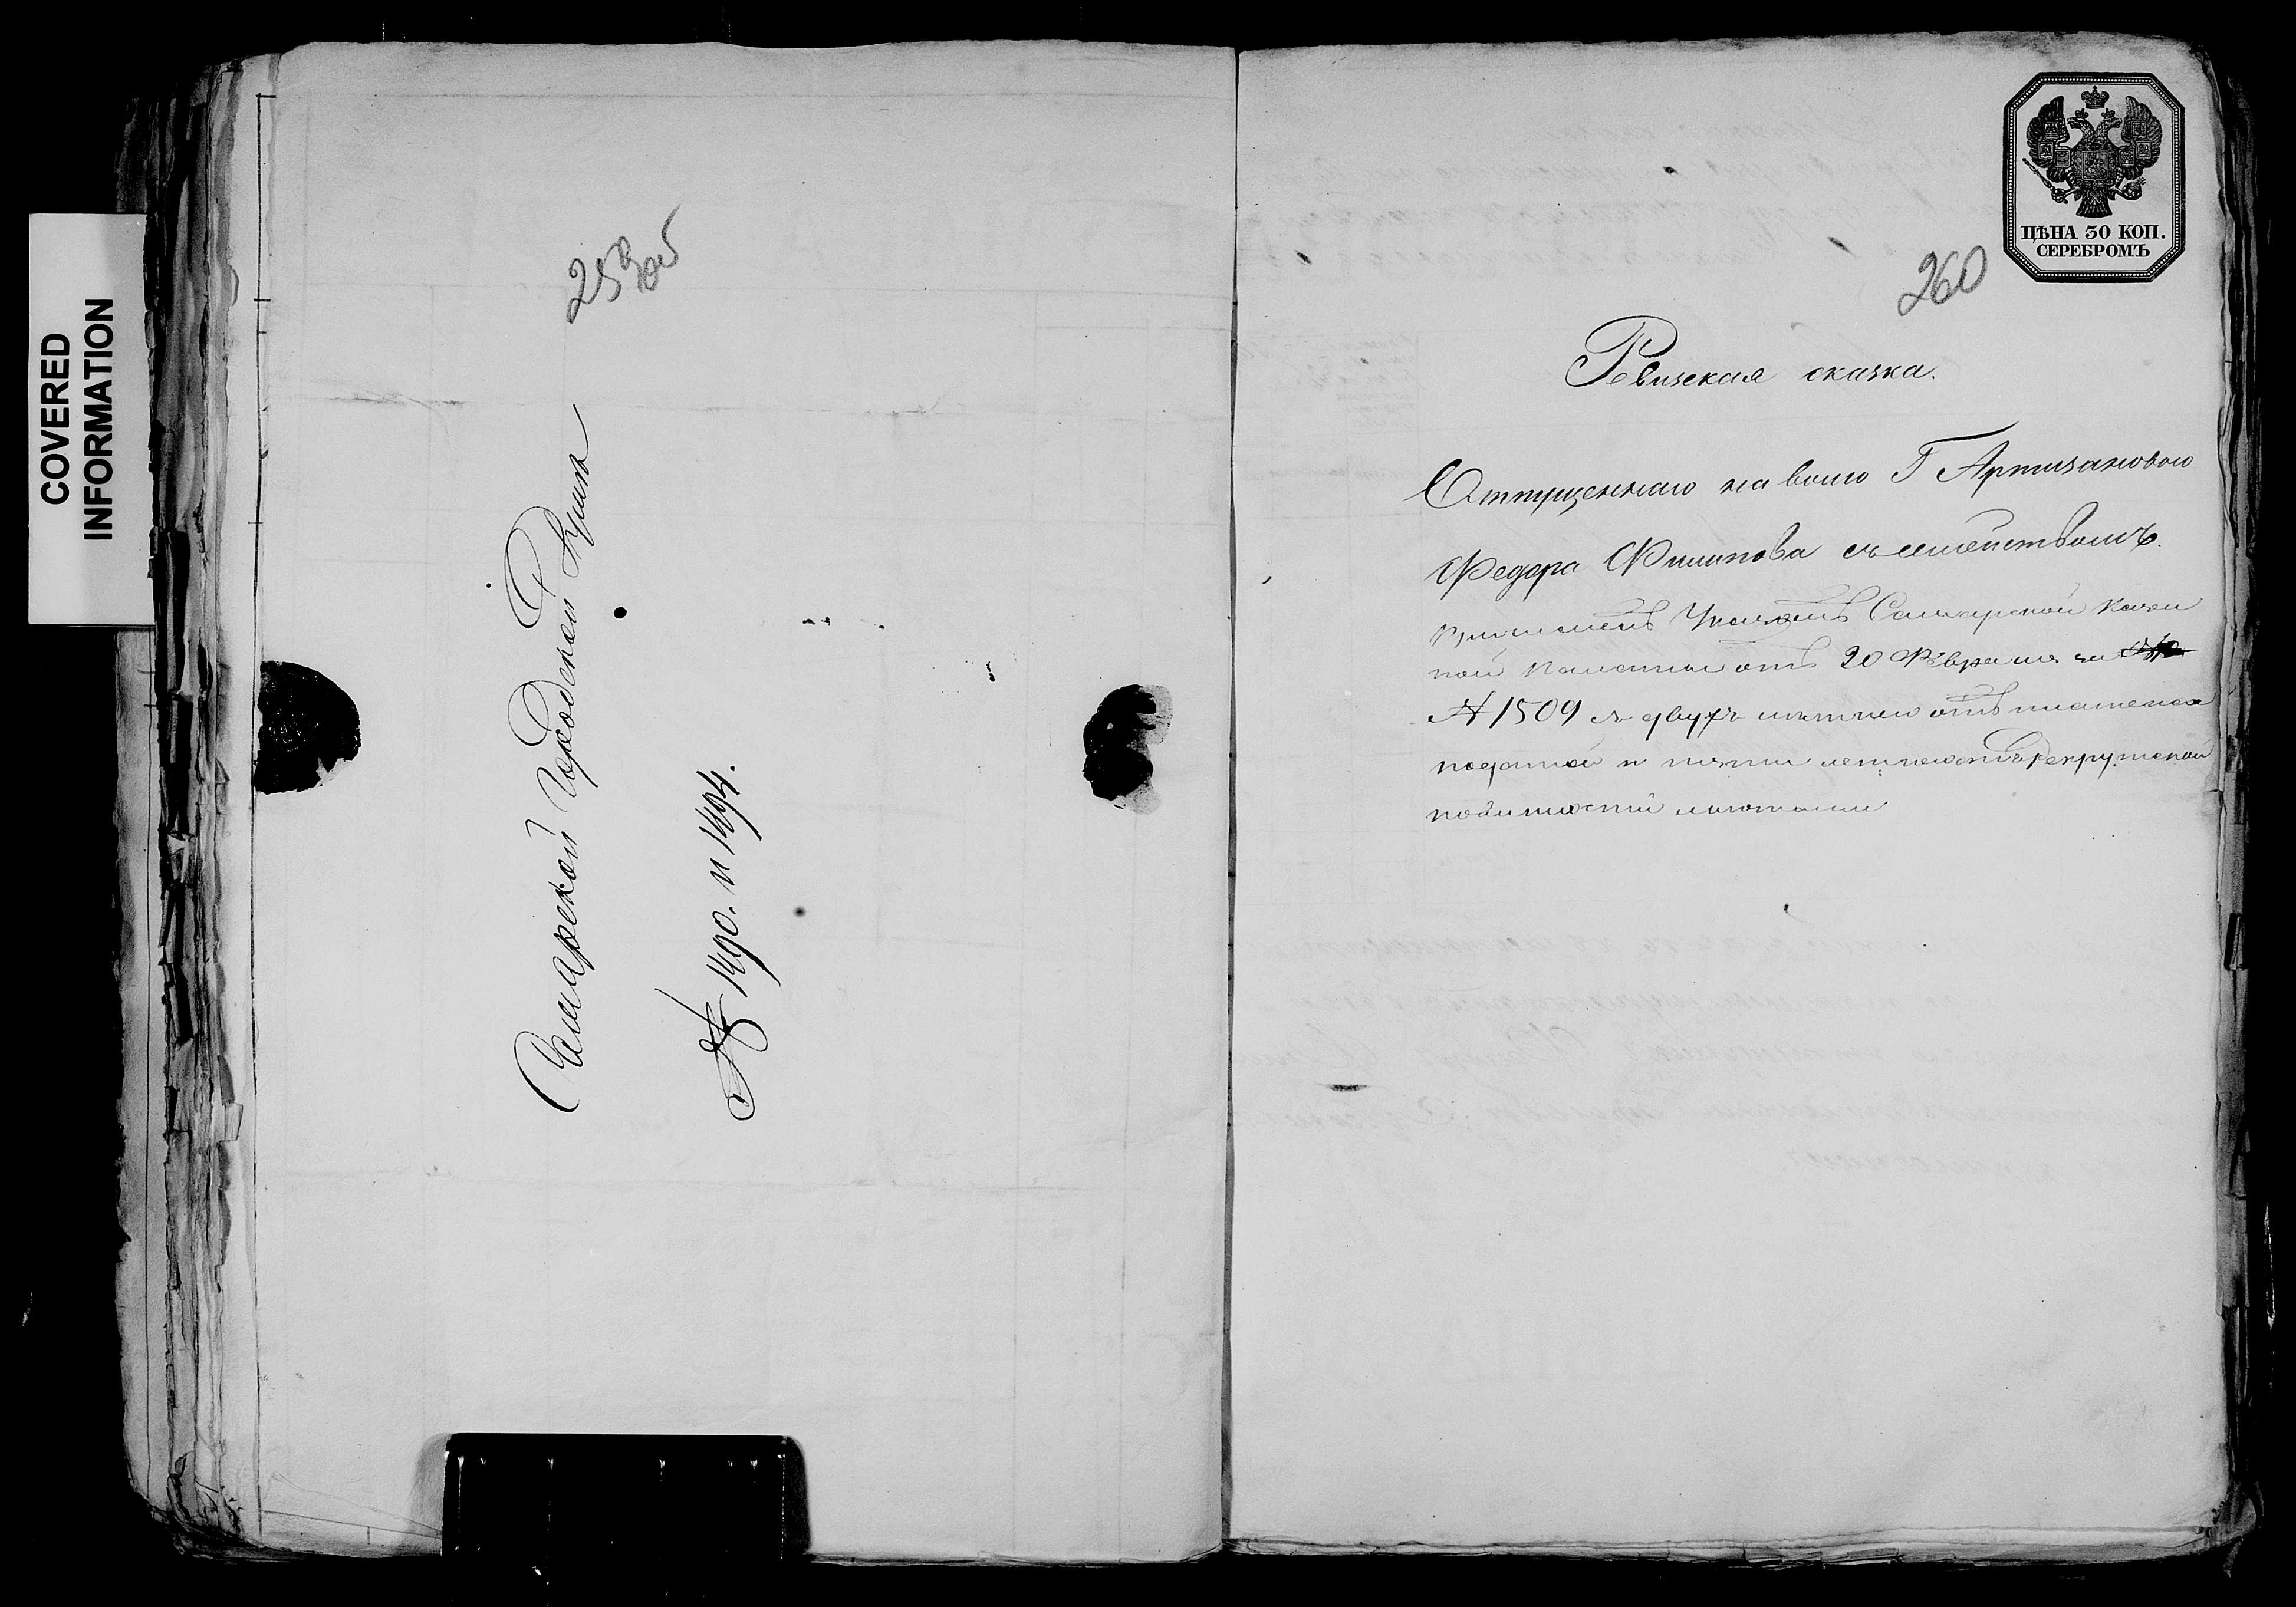 COVERED
INFORMATION
259об
Самарской Городской Думы
№ 1490. и 1494.
ЦѢНА 30 КОП.
СЕРЕБРОМЪ
260
Ревизская сказка.
Отпущеннаго на волю Г Артизановою
Федора Филипова съ семействомъ.
Причисленъ Указомъ Самарской Казен
ной Палаты отъ 20 Февраля за
№ 1509 съ двухъ летнею отъ платежа
податей и пяти летнею отъ рекрутской
повинностей льготами